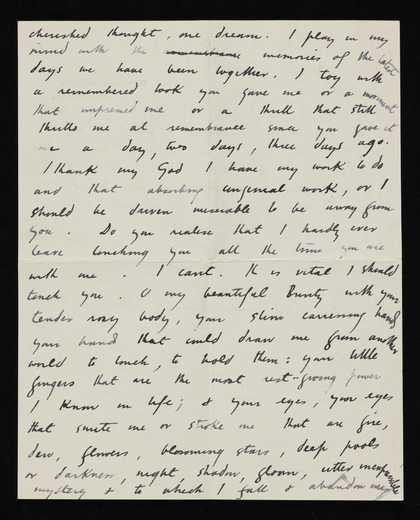 cherished thought, one dream. I play in my
mind with the remembrance memories of the latest
days we have been together. I toy with
a remembered look you gave me or a moment
that impressed me or a thrill that still
thrills me at remembrance since you gave it
me a day, two days, three days ago.
I thank my God I have my work to do
and that absorbing congenial work, or I
should be driven miserable to be away from
you. Do you realise that I hardly ever
leave touching you all the time you are
with me. I cant. It is vital I should
touch you. O my beautiful Bunty with your
tender rosy body, your slim caressing hand
your hand that could draw me from another
world to touch, to hold them: your little
fingers that are the most rest-giving power
I know in life; & your eyes, your eyes
that smite me or stroke me that are fire,
dew, flowers, blossoming stars, deep pools
or darkness, night, shadow, gloom, utter
mystery & to which I fall & abandon